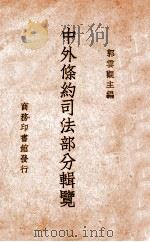 郭雲觀主編
中外條約司法部分輯覽
商務印書館發行